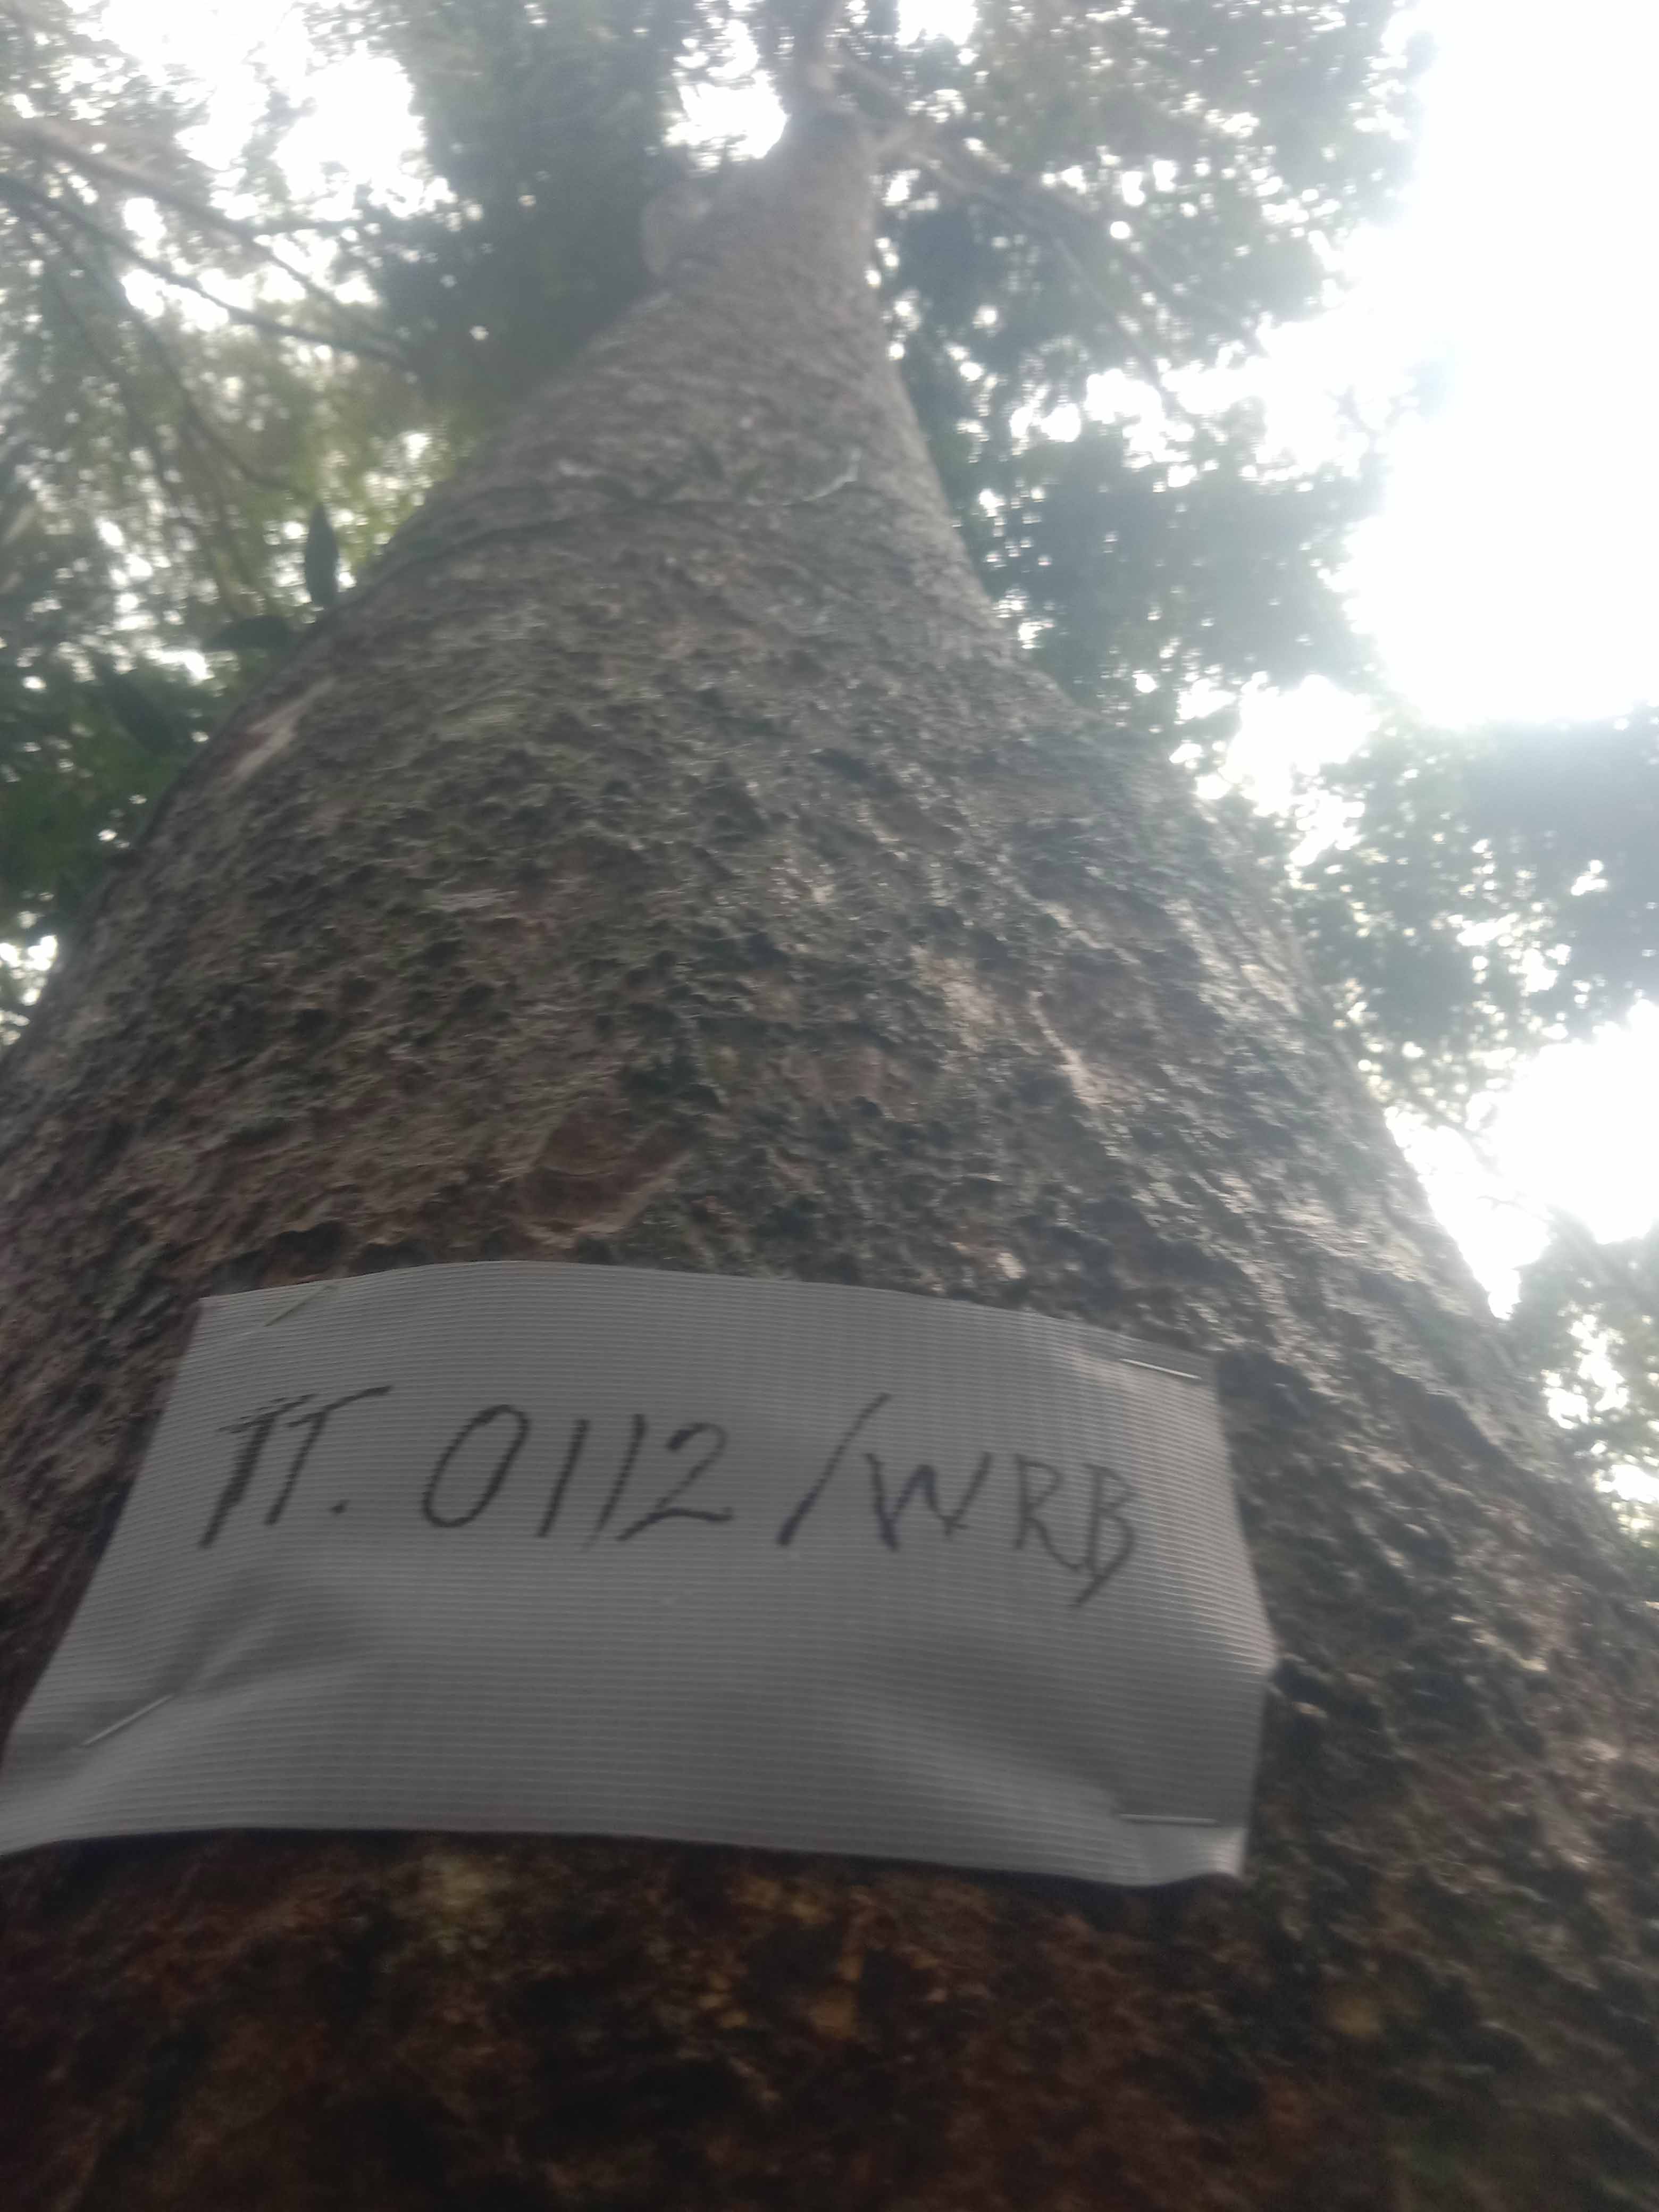 TT. 0112/WRB